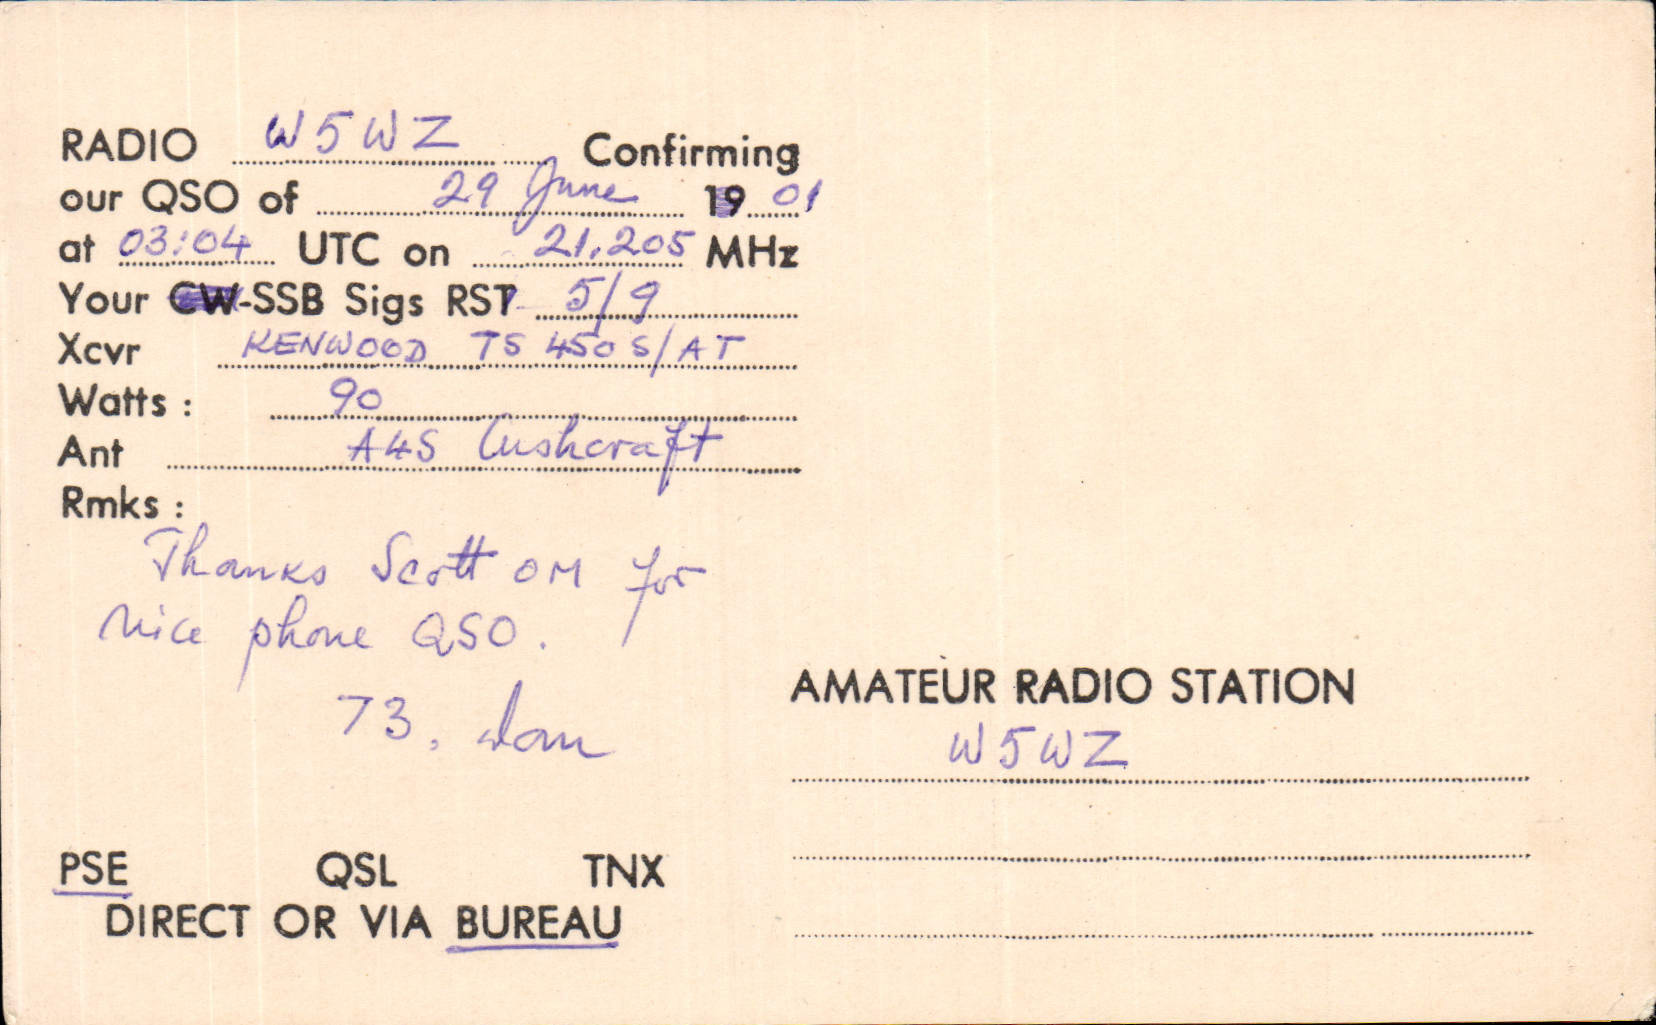 RADIO W5WZ Confirming
our QSO of 29 June 19 01
at 03:04 UTC on 21.205 MHz
Your CW-SSB Sigs RST 5/9
Xcvr KENWOOD TS 450 S/AT
Watts : 90
Ant A4S Cushcraft
Rmks :
Thanks Scott OM for
nice phone QSO.
73, Dom
PSE QSL TNX
DIRECT OR VIA BUREAU
AMATEUR RADIO STATION
W5WZ